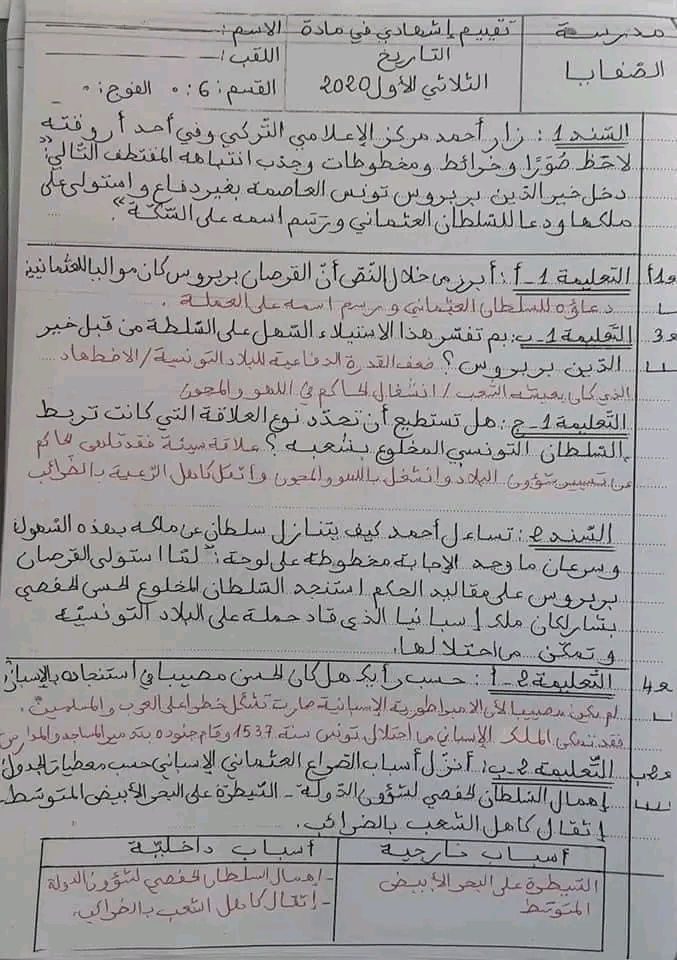 مدرسة
الصفايا
تقييم إشهادي في مادة
التاريخ
الثلاثي الأول 2020
الاسم:
اللقب:
القسم: 6 الفوج:
السند 1: زار أحمد مركز الإعلامي التركي وفي أحد أروقته
لاحظ صورًا وخرائط ومخطوطات وجذب انتباهه المقتطف التالي: "
دخل خير الدين بربروس تونس العاصمة بغير دفاع واستولى على
ملكها ودعا للسلطان العثماني ورسم اسمه على السكة".
مع1أ التعليمة 1-أ: أبرز من خلال النص أن القرصان بربروس كان مواليا للعثمانيين
دعاؤه للسلطان العثماني ورسم اسمه على العملة.
مع3 التعليمة 1-ب: بم تفسّر هذا الاستيلاء السهل على السلطة من قبل خير
الدين بربروس؟ ضعف القدرة الدفاعية للبلاد التونسية / الاضطهاد
الذي كان يعيشه الشعب / انشغال الحاكم في اللهو والمجون
التعليمة 1-ج: هل تستطيع أن تحدد نوع العلاقة التي كانت تربط
السلطان التونسي المخلوع بشعبه؟ علاقة سيئة فقد تلهى الحاكم
عن تسيير شؤون البلاد وانشغل باللهو والمجون وأثقل كاهل الرعية بالضرائب
السند 2: تساءل أحمد كيف يتنازل سلطان عن ملكه بهذه السهولة
وسرعان ما وجد الإجابة مخطوطة على لوحة: "لمّا استولى القرصان
بربروس على مقاليد الحكم استنجد السلطان المخلوع الحسن الحفصي
بشارلكان ملك إسبانيا الذي قاد حملة على البلاد التونسيّة
وتمكّن من احتلالها.
مع4 التعليمة 2-أ: حسب رأيك هل كان الحسن مصيبا في استنجاده بالإسبان
لم يكن مصيبا لأن الامبراطورية الإسبانية صارت تشكل خطرا على العرب والمسلمين.
فقد تمكن الملك الإسباني من احتلال تونس سنة 1537 وقام جنوده بتدمير المساجد والمدارس
مع2ب التعليمة 2-ب: أنزل أسباب الصراع العثماني الإسباني حسب معطيات الجدول:
إهمال السلطان الحفصي لشؤون الدولة - السيطرة على البحر الأبيض المتوسط -
إثقال كاهل الشعب بالضرائب.
أسباب خارجية
أسباب داخليّة
السيطرة على البحر الأبيض
المتوسط
- إهمال السلطان الحفصي لشؤون الدولة
- إثقال كاهل الشعب بالضرائب.